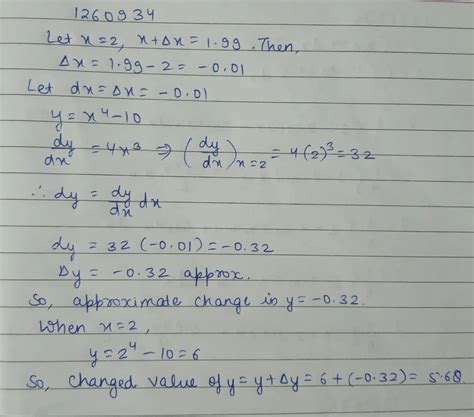 1260934
Let x=2, x+Δx = 1.99. Then,
Δx = 1.99-2 = -0.01
Let dx = Δx = -0.01
y = x⁴-10
dy/dx = 4x³ ⇒ (dy/dx)x=2 = 4(2)³ = 32
∴ dy = dy/dx dx
dy = 32 (-0.01) = -0.32
Δy = -0.32 approx.
So, approximate change in y = -0.32.
When x=2,
y = 2⁴ -10 = 6
So, changed value of y = y+Δy = 6+(-0.32) = 5.68